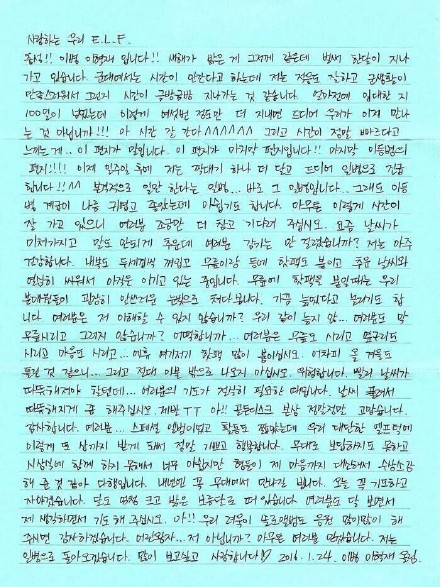 사랑하는 우리 E.L.F.
충성!! 이병 이혁재 입니다!! 새해가 밝은 게 그저께 같은데 벌써 한달이 지나
가고 있습니다. 군대에서는 시간이 안간다고 하는데 저는 적응도 잘하고 군생활이
만족스러워서 그런지 시간이 금방금방 지나가는 것 같습니다. 얼마전에 입대한 지
100일이 넘었는데 이렇게 여섯번 정도만 더 지내면 드디어 우리가 이제 만나
는 것 아닙니까!!! 아 시간 잘 간다^^^^^^ 그리고 시간이 정말 빠르다고
느끼는게.. 이 편지가 말입니다. 이 편지가 마지막 편지입니다!! 마지막 이등병의
편지!!!! 이제 일주일 후에 저는 짝대기 하나 더 달고 드디어 일병으로 진급
합니다!!^^ 본격적으로 일만 한다는 일병... 바로 그 일병입니다... 그래도 이등
병 계급이 나름 귀엽고 좋았는데 아쉽기도 합니다. 아무튼 이렇게 시간이
잘 가고 있으니 여러분 조금만 더 참고 기다려 주십시오. 요즘 날씨가
미쳐가지고 말도 안되게 추운데 여러분 감기는 안 걸렸습니까? 저는 아주
건강합니다. 내복도 두세겹씩 껴입고 무릎이랑 등에 핫팩도 붙이고 추운 날씨와
열심히 싸워서 아직은 이기고 있는 중입니다. 무릎에 핫팩을 붙일때는 우리
분대원들이 굉장히 안쓰러운 눈빛으로 쳐다봅니다. 가끔 늙었다고 놀리기도 합
니다 여러분은 저 이해할 수 있지 않습니까? 우리 같이 늙지 않... 여러분도 막
무릎시리고 그러지 않습니까? 어떡합니까... 여러분은 무릎도 시리고 옆구리도
시리고 마음도 시리고... 에휴 여기저기 핫팩 많이 붙이십시오. 어차피 올 겨울도
똑같 것 같으니... 그리고 절대 이불 밖으로 나오지 마십시오. 위험합니다. 빨리 날씨가
따뜻해져야 할텐데... 여러분의 기도가 절실히 필요한 때입니다. 날씨 풀려서
따뜻해지게 좀 해주십시오. 제발 TT 아!! 골든디스크 본상 정말정말 고맙습니다.
감사합니다. 여러분... 스페셜 앨범이었고 활동도 짧았는데 우리 대단한 엘프덕에
이렇게 또 상까지 받게 돼서 정말 기쁘고 행복합니다. 무대로 보답하지도 못하고
시상식에 함께 하지 못해서 너무 아쉽지만 형들이 제 마음까지 대신해서 수상소감
해 준 것 같아 다행입니다. 내년엔 꼭 무대에서 만나길 빕니다. 오늘 꼭 기도하고
자야겠습니다. 달도 마침 크고 밝은 보름달로 떠 있습니다. 여러분도 달 보면서
제 생각하면서 기도 해 주십시오. 아!! 우리 려욱이 솔로앨범도 응원 많이많이 해
주시면 감사하겠습니다. 어린왕자... 저 아닙니까? 아무튼 여러분 믿겠습니다. 저는
일병으로 돌아오겠습니다. 많이 보고싶고 사랑합니다!♡ 2016. 1. 24. 이병 이혁재 올림